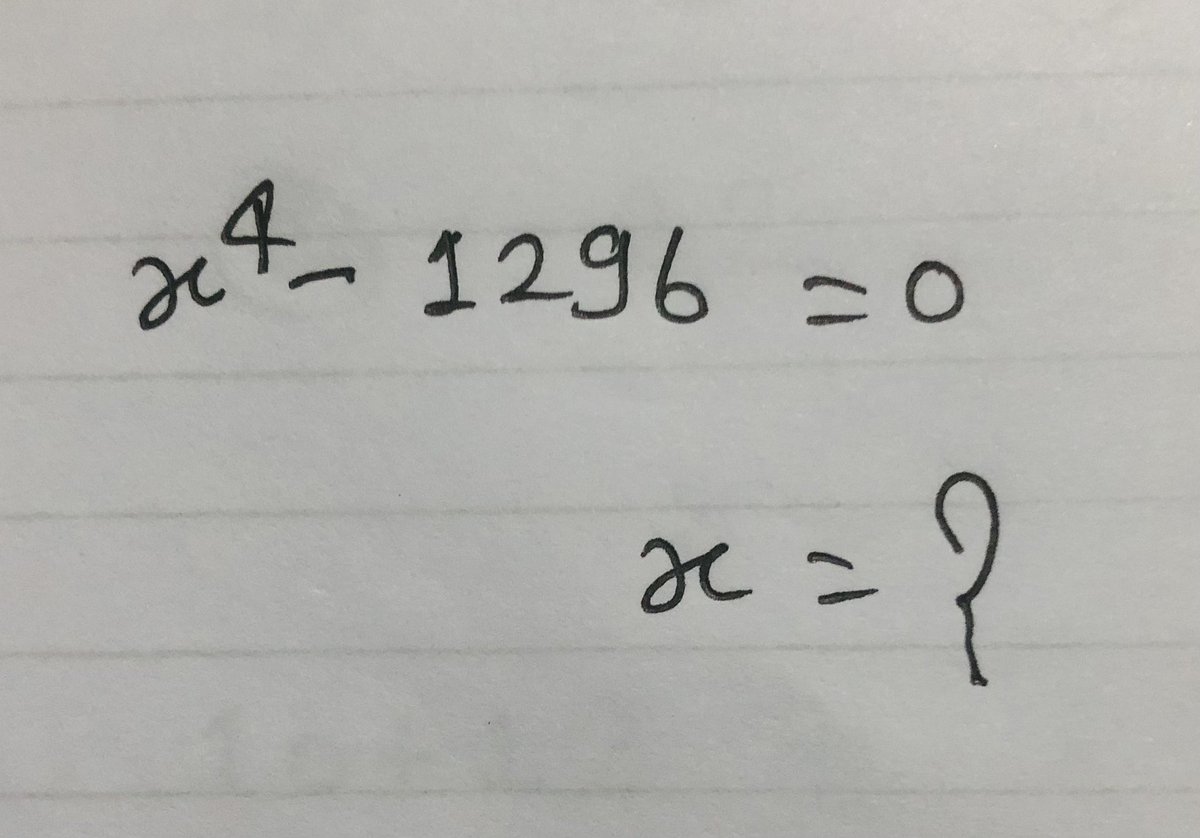 x⁴ - 1296 = 0
x = ?